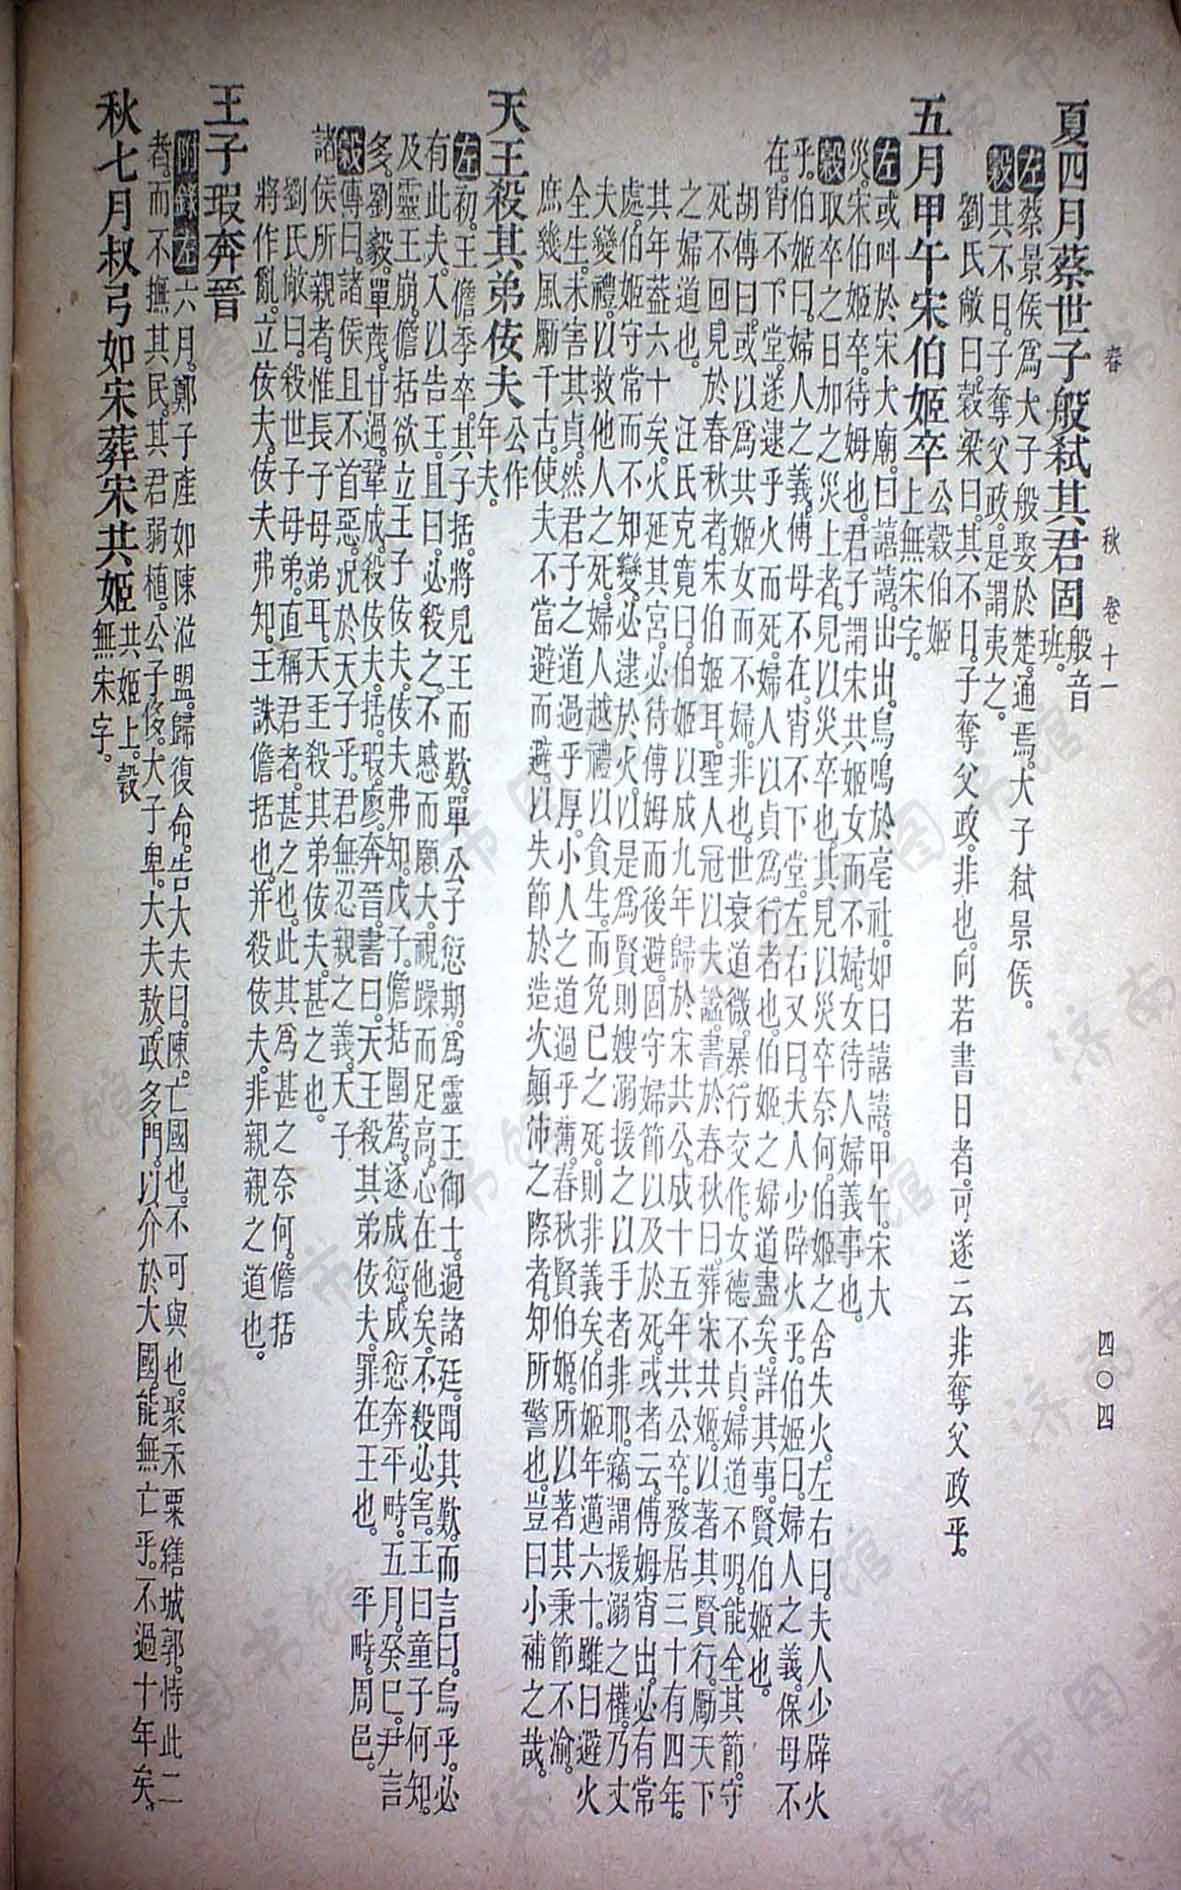 春 秋 卷十一 四〇四
夏四月蔡世子般弒其君固 般音班。
左 蔡景侯爲大子般娶於楚。通焉。大子弒景侯。
穀 其不日。子奪父政。是謂夷之。
劉氏敞曰。穀梁曰。其不日。子奪父政。非也。向若書日者。可遂云非奪父政乎。
五月甲午宋伯姬卒 公穀伯姬上無宋字。
左 或叫於宋大廟。曰譆譆。出出。鳥鳴於亳社。如曰譆譆。甲午。宋大
災。宋伯姬卒。待姆也。君子謂宋共姬女而不婦。女待人。婦義事也。
穀 取卒之日加之災上者。見以災卒也。其見以災卒奈何。伯姬之舍失火。左右曰。夫人少辟火
乎。伯姬曰。婦人之義。傅母不在。宵不下堂。左右又曰。夫人少辟火乎。伯姬曰。婦人之義。保母不
在。宵不下堂。遂逮乎火而死。婦人以貞爲行者也。伯姬之婦道盡矣。詳其事。賢伯姬也。
胡傳曰。或以爲共姬女而不婦。非也。世衰道微。暴行交作。女德不貞。婦道不明。能全其節。守
死不回。見於春秋者。宋伯姬耳。聖人冠以夫謚。書於春秋曰。葬宋共姬。以著其賢行。勵天下
之婦道也。 汪氏克寬曰。伯姬以成九年歸於宋共公。成十五年共公卒。婺居三十有四年。
其年葢六十矣。火延其宮。必待傅姆而後避。固守婦節以及於死。或者云。傅姆宵出。必有常
處。伯姬守常而不知變。必逮於火。以是爲賢。則嫂溺援之以手者非耶。竊謂援溺之權。乃丈
夫變禮。以救他人之死。婦人越禮以貪生。而免已之死。則非義矣。伯姬年邁六十。雖曰避火
全生。未害其貞。然君子之道過乎厚。小人之道過乎薄。春秋賢伯姬。所以著其秉節不渝。
庶幾風勵千古。使夫不當避而避。以失節於造次顛沛之際者。知所警也。豈曰小補之哉。
天王殺其弟佞夫 公作年夫。
左 初。王儋季卒。其子括。將見王而歎。單公子愆期。爲靈王御士。過諸廷。聞其歎。而言曰。烏乎。必
有此夫。入以告王。且曰。必殺之。不慼而願大。視躁而足高。心在他矣。不殺必害。王曰。童子何知。
及靈王崩。儋括欲立王子佞夫。佞夫弗知。戊子。儋括圍蒍。逐成愆。成愆奔平畤。五月。癸巳。尹言
多。劉毅。單蔑。甘過。鞏成。殺佞夫。括。瑕。廖。奔晉。書曰。天王殺其弟佞夫。罪在王也。 平畤。周邑。
穀 傳曰。諸侯且不首惡。況於天子乎。君無忍親之義。天子
諸侯所親者。惟長子母弟耳。天王殺其弟佞夫。甚之也。
劉氏敞曰。殺世子母弟。直稱君者。甚之也。此其爲甚之奈何。儋括
將作亂。立佞夫。佞夫弗知。王誅儋括也。并殺佞夫。非親親之道也。
王子瑕奔晉
附錄左 六月。鄭子產如陳涖盟。歸復命。告大夫曰。陳。亡國也。不可與也。聚禾粟。繕城郭。恃此二
者。而不撫其民。其君弱植。公子侈。大子卑。大夫敖。政多門。以介於大國。能無亡乎。不過十年矣。
秋七月叔弓如宋葬宋共姬 共姬上。穀無宋字。